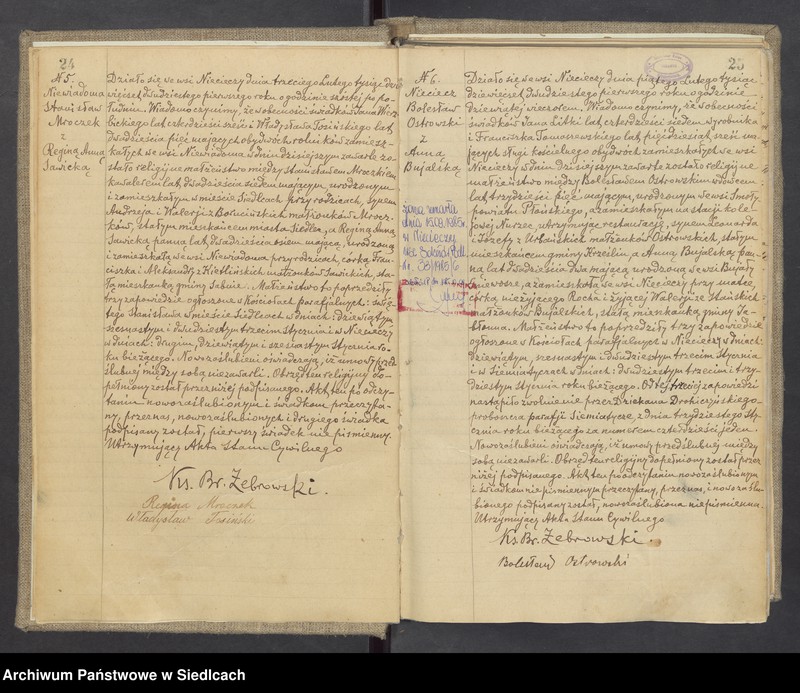 24
№ 5.
Niewiadoma
Stanisław
Mroczek
z
Reginą Anną
Sawicką
Działo się we wsi Niecieczy dnia trzeciego Lutego tysiąc dzie
więćset dwudziestego pierwszego roku o godzinie szóstej po po-
łudniu. Wiadomo czynimy, że w obecności świadków Jana Wicz
bickiego lat czterdzieści sześć i Władysława Tosińskiego lat
dwadzieścia pięć mających obydwóch rolników zamiesz-
kałych we wsi Niewiadoma w dniu dzisiejszym zawarte zo-
stało religijne małżeństwo między Stanisławem Mroczkiem
kawalerem lat dwadzieścia siedem mającym, urodzonym
i zamieszkałym w mieście Siedlcach przy rodzicach, synem
Andrzeja i Walerji z małżonków Mrocz-
ków, stałym mieszkańcem miasta Siedlec, a Reginą Anną
Sawicką panną lat dwadzieścia osiem mającą, urodzoną
i zamieszkałą we wsi Niewiadoma przy rodzicach, córką Fran-
ciszka i Aleksandry z małżonków Sawickich, sta-
łą mieszkanką gminy Sabnie. Małżeństwo to poprzedziły
trzy zapowiedzie ogłoszone w Kościołach parafjalnych: świę-
tego Stanisława w mieście Siedlcach w dniach: dziewiątym
szesnastym i dwudziestym trzecim Stycznia i w Niecieczy
w dniach: drugim, dziewiątym i szesnastym Stycznia ro-
ku bieżącego. Nowozaślubieni oświadczają, iż umowy przed
ślubnej między sobą nie zawarli. Obrzęd ten religijny do-
pełniony został przez niżej podpisanego. Akt ten po odczy-
taniu nowozaślubionym i świadkom przeczyta-
ny, przez nas, nowozaślubionych i drugiego świadka
podpisany został, pierwszy świadek niepiśmienny.
Utrzymujący Akta Stanu Cywilnego
Ks. Br. Żebrowski.
Regina Mroczek
Władysław Tosiński
25
№ 6.
Nieciecz
Bolesław
Ostrowski
z
Anną
Bujalską
żona zmarła
dnia 15.08.1985r.
w Niecieczy
Nr. 33/1985/6
Działo się we wsi Niecieczy dnia piątego Lutego tysiąc
dziewięćset dwudziestego pierwszego roku o godzinie
dziewiątej wieczorem. Wiadomo czynimy, iż w obecności
świadków Jana Zitki lat czterdzieści siedem wyrobnika
i Franciszka Tomaszewskiego lat pięćdziesiąt sześć ma-
jących sługi kościelnego obydwóch zamieszkałych we wsi
Niecieczy w dniu dzisiejszym zawarte zostało religijne
małżeństwo między Bolesławem Ostrowskim wdowcem
lat trzydzieści pięć mającym, urodzonym we wsi Smoły
powiatu Płońskiego, a zamieszkałym na stacji kole-
jowej Nurzec, utrzymując restaurację, synem Leonarda
i Józefy z Urbańskich małżonków Ostrowskich, stałym
mieszkańcem gminy , a Anną Bujalską pan-
ną lat dwadzieścia dwa mającą urodzoną we wsi Bujały
, a zamieszkałą we wsi Niecieczy przy matce,
córką nieżyjącego Rocha i żyjącej Walerji ze
małżonków Bujalskich, stałą mieszkanką gminy Ja-
błonna. Małżeństwo to poprzedziły trzy zapowiedzie
ogłoszone w Kościołach parafjalnych w Niecieczy w dniach:
dziewiątym, szesnastym i dwudziestym trzecim Stycznia
i w Siemiatyczach w dniach: dwudziestym trzecim i trzy-
dziestym Stycznia roku bieżącego. Od tej trzeciej zapowiedzi
nastąpiło zwolnienie przez Dziekana Drohiczyńskiego
proboszcza parafji Siemiatycze, z dnia trzydziestego Sty-
cznia roku bieżącego za numerem czterdzieści jeden.
Nowozaślubieni oświadczają, iż umowy przedślubnej między
sobą nie zawarli. Obrzęd ten religijny dopełniony został przez
niżej podpisanego. Akt ten po odczytaniu nowozaślubionym
i świadkom niepiśmiennym przeczytany, przez nas, i nowozaślu-
bionego podpisany został, nowozaślubiona niepiśmienna.
Utrzymujący Akta Stanu Cywilnego
Ks. Br. Żebrowski.
Bolesław Ostrowski
Archiwum Państwowe w Siedlcach